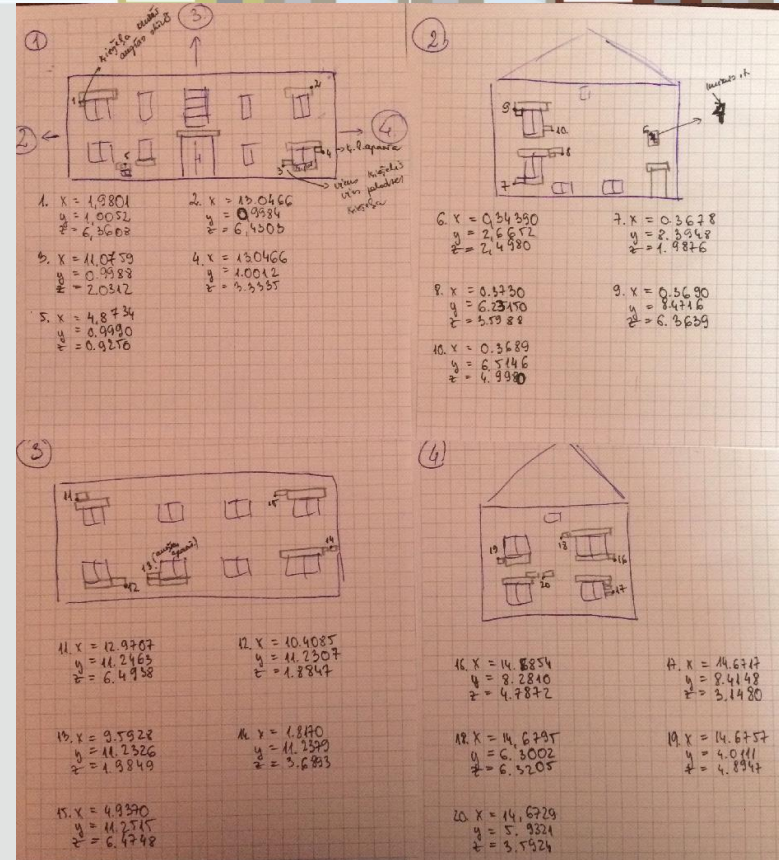 1
3
2
4.
1
2
3
4
5
1. x = 1,9801
y = 1,0052
z = 6,3603
2. x = 13.0466
y = 0.9984
z = 6,4303
3. x = 11.0759
y = 0.9988
z = 2.0312
4. x = 13.0466
y = 1.0012
z = 3.3335
5. x = 4.8734
y = 0.9990
z = 0.9250
2.
9
10
8
7
6
6. x = 0,34390
y = 2,6652
z = 2,4980
7. x = 0.3678
y = 8.3948
z = 1.9876
8. x = 0.3730
y = 6.23150
z = 3.5988
9. x = 0.3690
y = 8.4716
z = 6.3639
10. x = 0.3689
y = 6,5146
z = 4.9980
3
11
15
13
12
14
11. x = 12.9707
y = 11.2463
z = 6.4938
12. x = 10.4085
y = 11.2307
z = 1.8847
13. x = 9.5928
y = 11.2326
z = 1.9849
14. x = 1.8170
y = 11.2379
z = 3.6893
15. x = 4.9370
y = 11.2515
z = 6.4748
4
19
18
16
20
17
16. x = 14.6854
y = 8.2810
z = 4.7872
17. x = 14.6717
y = 8.4148
z = 3.1480
18. x = 14,6795
y = 6.3002
z = 6.3205
19. x = 14.6757
y = 4.0111
z = 4.8947
20. x = 14,6729
y = 5.9321
z = 3.5924